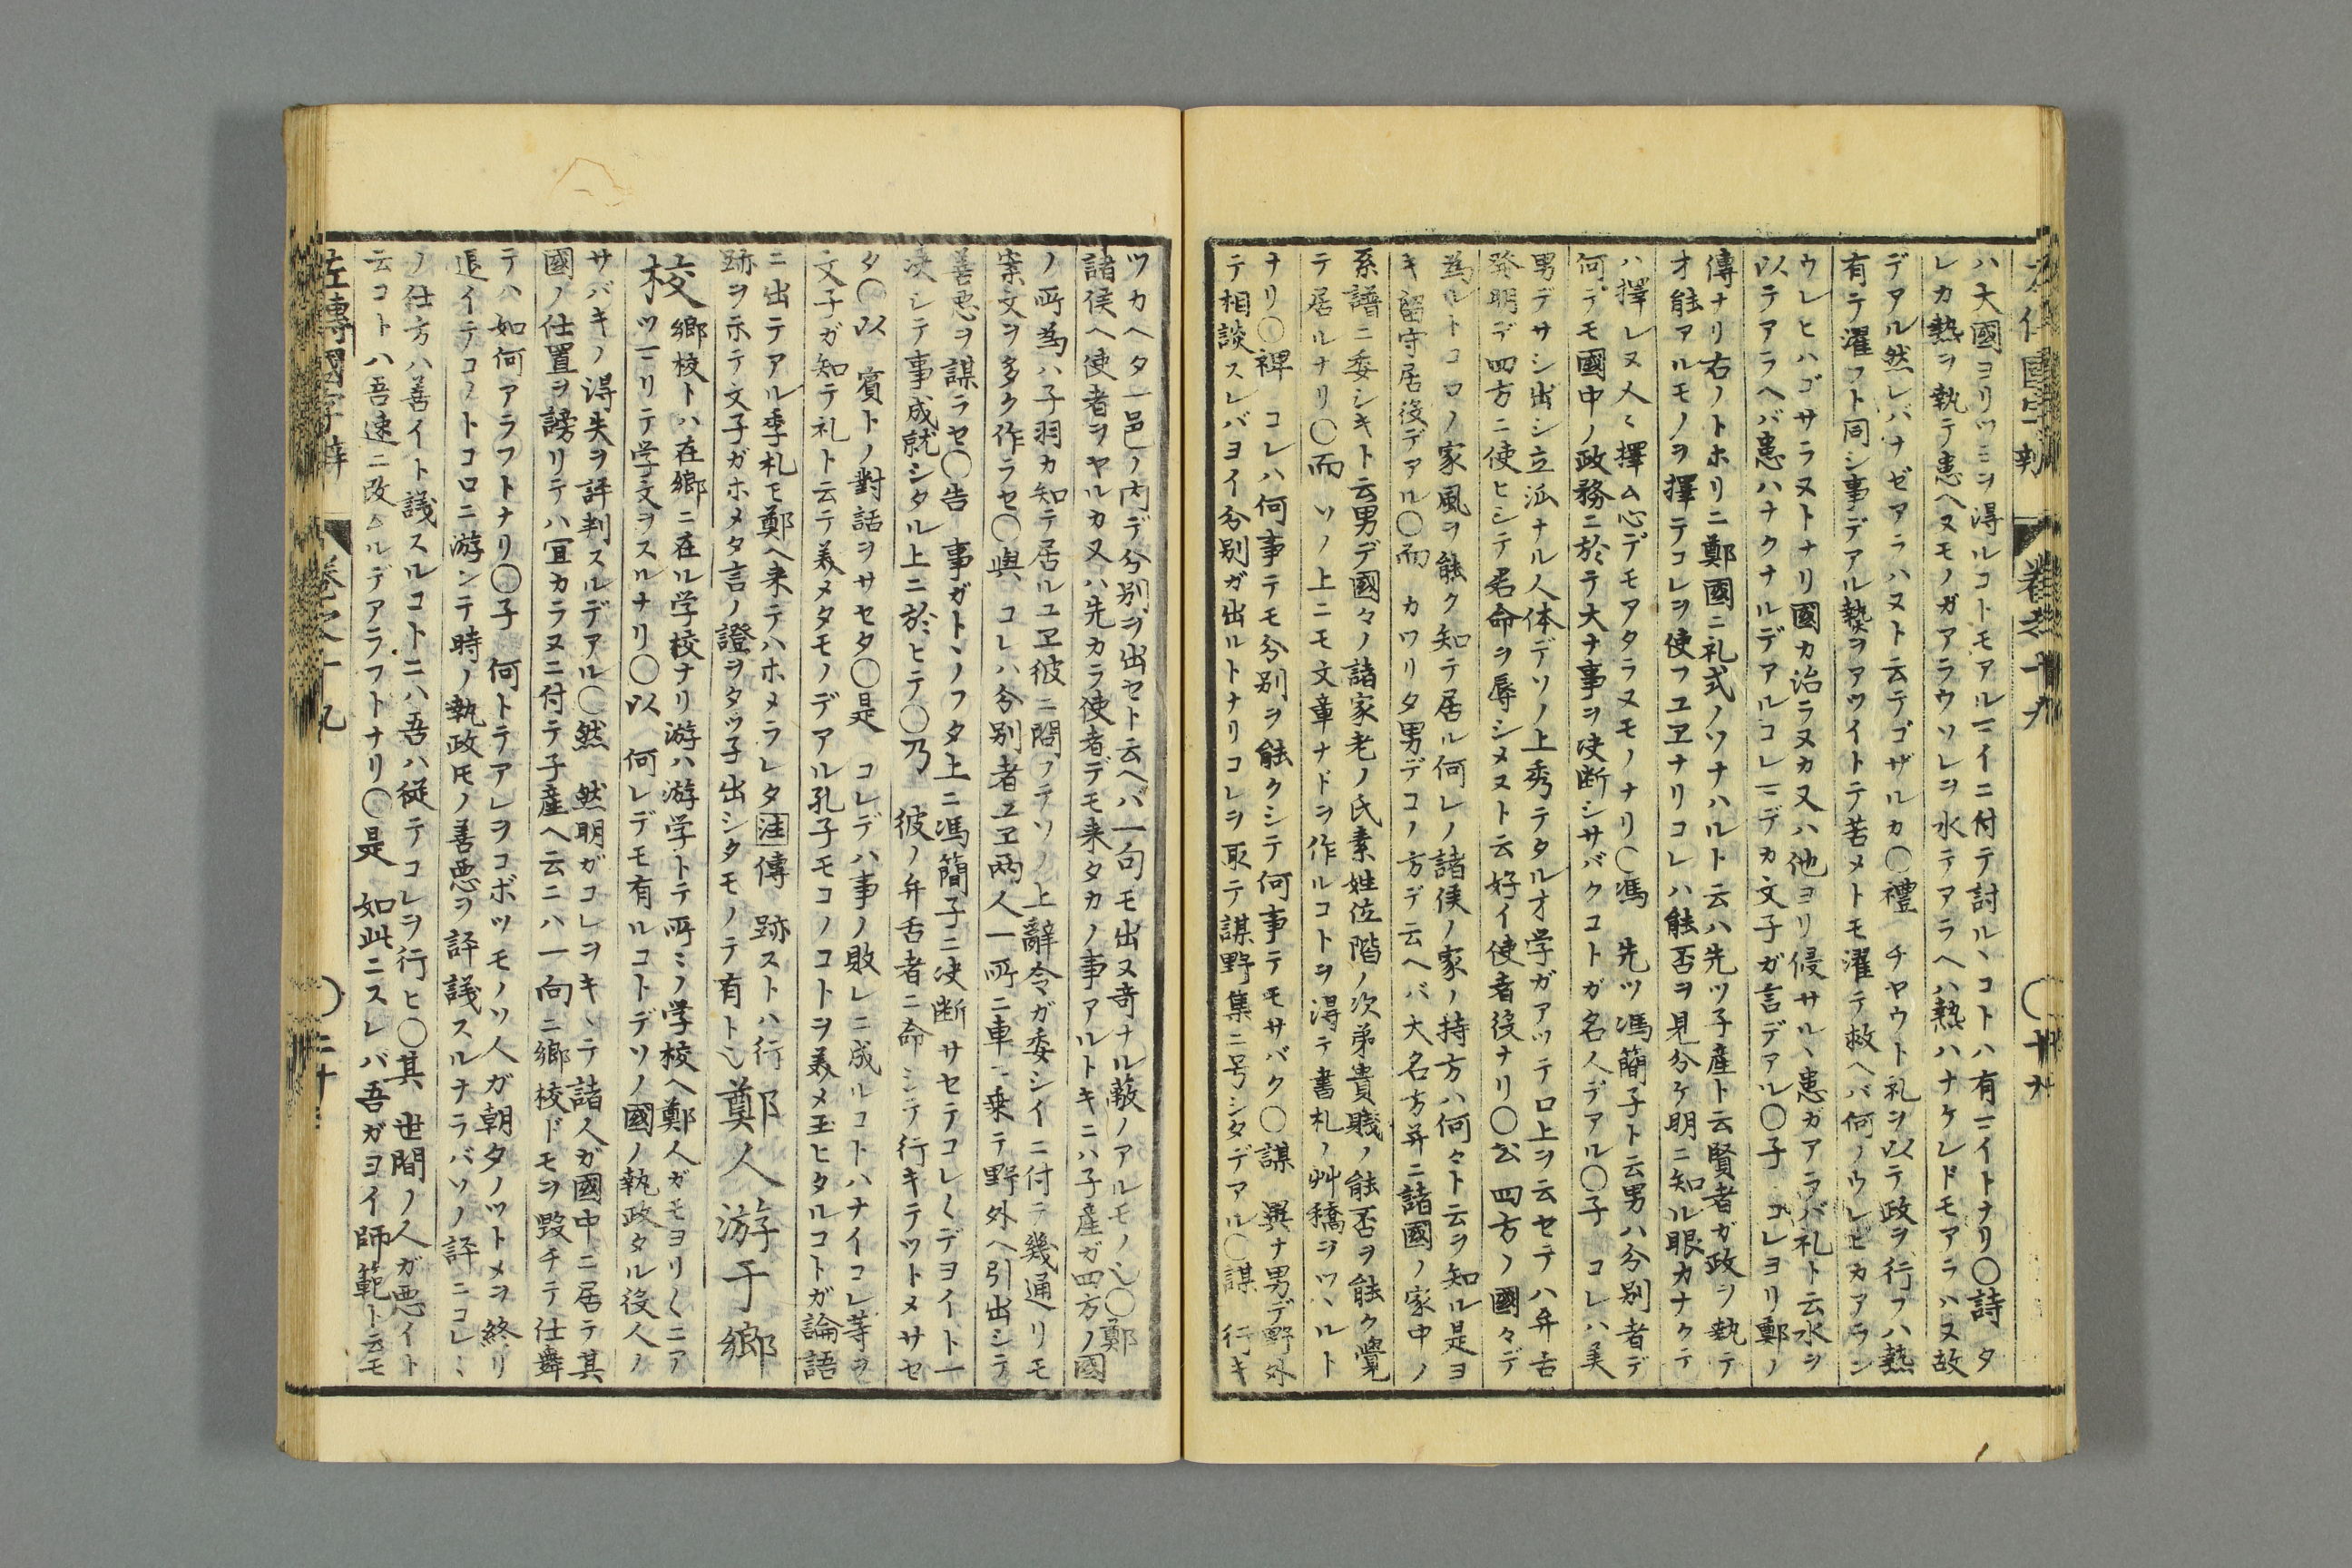 ハ大國ヨリツミヲ得ルコトモアルニイニ付テ討ルヽコトハ有ニイトナリ〇詩 タ
レカ熱ヲ執テ患ヘヌモノガアラウソレヲ水テアラヘハ熱ハナケレドモアラハヌ故
デアル然レバナゼアラハヌト云テゴザルカ〇禮 チヤウト礼ヲ以テ政ヲ行フハ熱
有テ濯フト同シ事デアル熱ヲアツイトテ苦メトモ濯テ救ヘバ何ノウレヒカアラン
ウレヒハゴサラヌトナリ國カ治ラヌカ又ハ他ヨリ侵サルヽ患ガアラバ礼ト云水ヲ
以テアラヘバ患ハナクナルデアルコレニデカ文子ガ言デアル〇子 コレヨリ鄭ノ
傳ナリ右ノトホリニ鄭國ニ礼式ノソナハルト云ハ先ツ子産ト云賢者ガ政ヲ執テ
才能アルモノヲ擇テコレヲ使フユヱナリコレハ能否ヲ見分ケ明ニ知ル眼力ナクテ
ハ擇レヌ人ヽ擇ム心デモアタラヌモノナリ〇馮 先ツ馮簡子ト云男ハ分別者デ
何テモ國中ノ政務ニ於テ大ナ事ヲ决断シサバクコトガ名人デアル〇子 コレハ美
男デサシ出シ立派ナル人体デソノ上秀テタル才学ガアツテ口上ヲ云セテハ弁舌
発明デ四方ニ使ヒシテ君命ヲ辱シメヌト云好イ使者役ナリ〇公 四方ノ國々デ
為ルトコロノ家風ヲ能ク知テ居ル何レノ諸侯ノ家ノ持方ハ何々ト云ヲ知ル是ヨ
キ留守居役デアル〇而 カワリタ男デコノ方デ云ヘバ大名方并ニ諸國ノ家中ノ
系譜ニ委シキト云男デ國々ノ諸家老ノ氏素姓位階ノ次弟貴賤ノ能否ヲ能ク覺
テ居ルナリ〇而 ソノ上ニモ文章ナドヲ作ルコトヲ得テ書札ノ艸稿ヲツヽルト
ナリ〇裨 コレハ何事テモ分別ヲ能クシテ何事テモサバク〇謀 異ナ男デ野外
テ相談スレバヨイ分別ガ出ルトナリコレヲ取テ謀野集ニ号シタデアル〇謀 行キ
左傳國字辯 卷之十九 〇十九
ツカヘタ一邑ノ内デ分別ヲ出セト云ヘバ一向モ出ヌ竒ナル蔽ノアルモノ也〇鄭
諸侯ヘ使者ヲヤルカ又ハ先カラ使者デモ来タカノ事アルトキニハ子産ガ四方ノ國
ノ所為ハ子羽カ知テ居ルユヱ彼ニ問フテソノ上辭令ガ委シイニ付テ幾通リモ
案文ヲ多ク作ラセ〇與 コレハ分別者ユヱ兩人一所ニ車ニ乗テ野外ヘ引出シテ
善悪ヲ謀ラセ〇告 事ガトヽノフタ上ニ馮簡子ニ决断サセテコレ〱デヨイト一
决シテ事成就シタル上ニ於ヒテ〇乃 彼ノ弁舌者ニ命シテ行キテツトメサセ
タ〇以 賓トノ對話ヲサセタ〇是 コレデハ事ノ敗レニ成ルコトハナイコレ等ヲ
文子ガ知テ礼ト云テ美メタモノデアル孔子モコノコトヲ美メ玉ヒタルコトガ論語
ニ出テアル季札モ鄭ヘ来テハホメラレタ注傳 跡ストハ行
跡ヲ示テ文子ガホメタ言ノ證ヲタツ子出シタモノテ有ト也
鄭人游于鄉
校
鄉校トハ在鄉ニ在ル学校ナリ游ハ游学トテ所ミノ学校ヘ鄭人ガモヨリ〱ニア
ツマリテ学文ヲスルナリ〇以 何レデモ有ルコトデソノ國ノ執政タル役人ノ
サバキノ得失ヲ評判スルデアル〇然 然明ガコレヲキヽテ諸人ガ國中ニ居テ其
國ノ仕置ヲ謗リテハ冝カラヌニ付テ子産ヘ云ニハ一向ニ鄉校ドモヲ毀チテ仕舞
テハ如何アラフトナリ〇子 何トテアレヲコボツモノソ人ガ朝夕ノツトメヲ終リ
退イテコノトコロニ游ンテ時ノ執政氏ノ善悪ヲ評議スルナラバソノ評ニコレヽ
ノ仕方ハ善イト議スルコトニハ吾ハ従テコレヲ行ヒ〇其 世間ノ人ガ悪イト
云コトハ吾速ニ改ムルデアラフトナリ〇是 如此ニスレバ吾ガヨイ師範ト云モ
左傳國字辯 卷之十九 〇二十